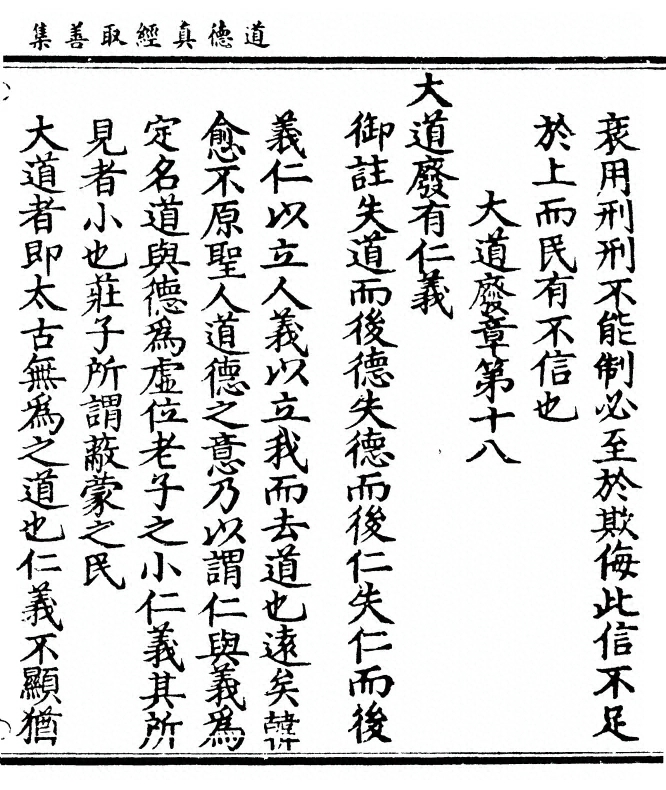 道德真經取善集
衰用刑刑不能制必至於欺侮此信不足
於上而民有不信也
大道廢章第十八
大道廢有仁義
御註失道而後德失德而後仁失仁而後
義仁以立人義以立我而去道也遠矣韓
愈不原聖人道德之意乃以謂仁與義為
定名道與德為虛位老子之小仁義其所
見者小也莊子所謂蔽蒙之民
大道者即太古無為之道也仁義不顯猶